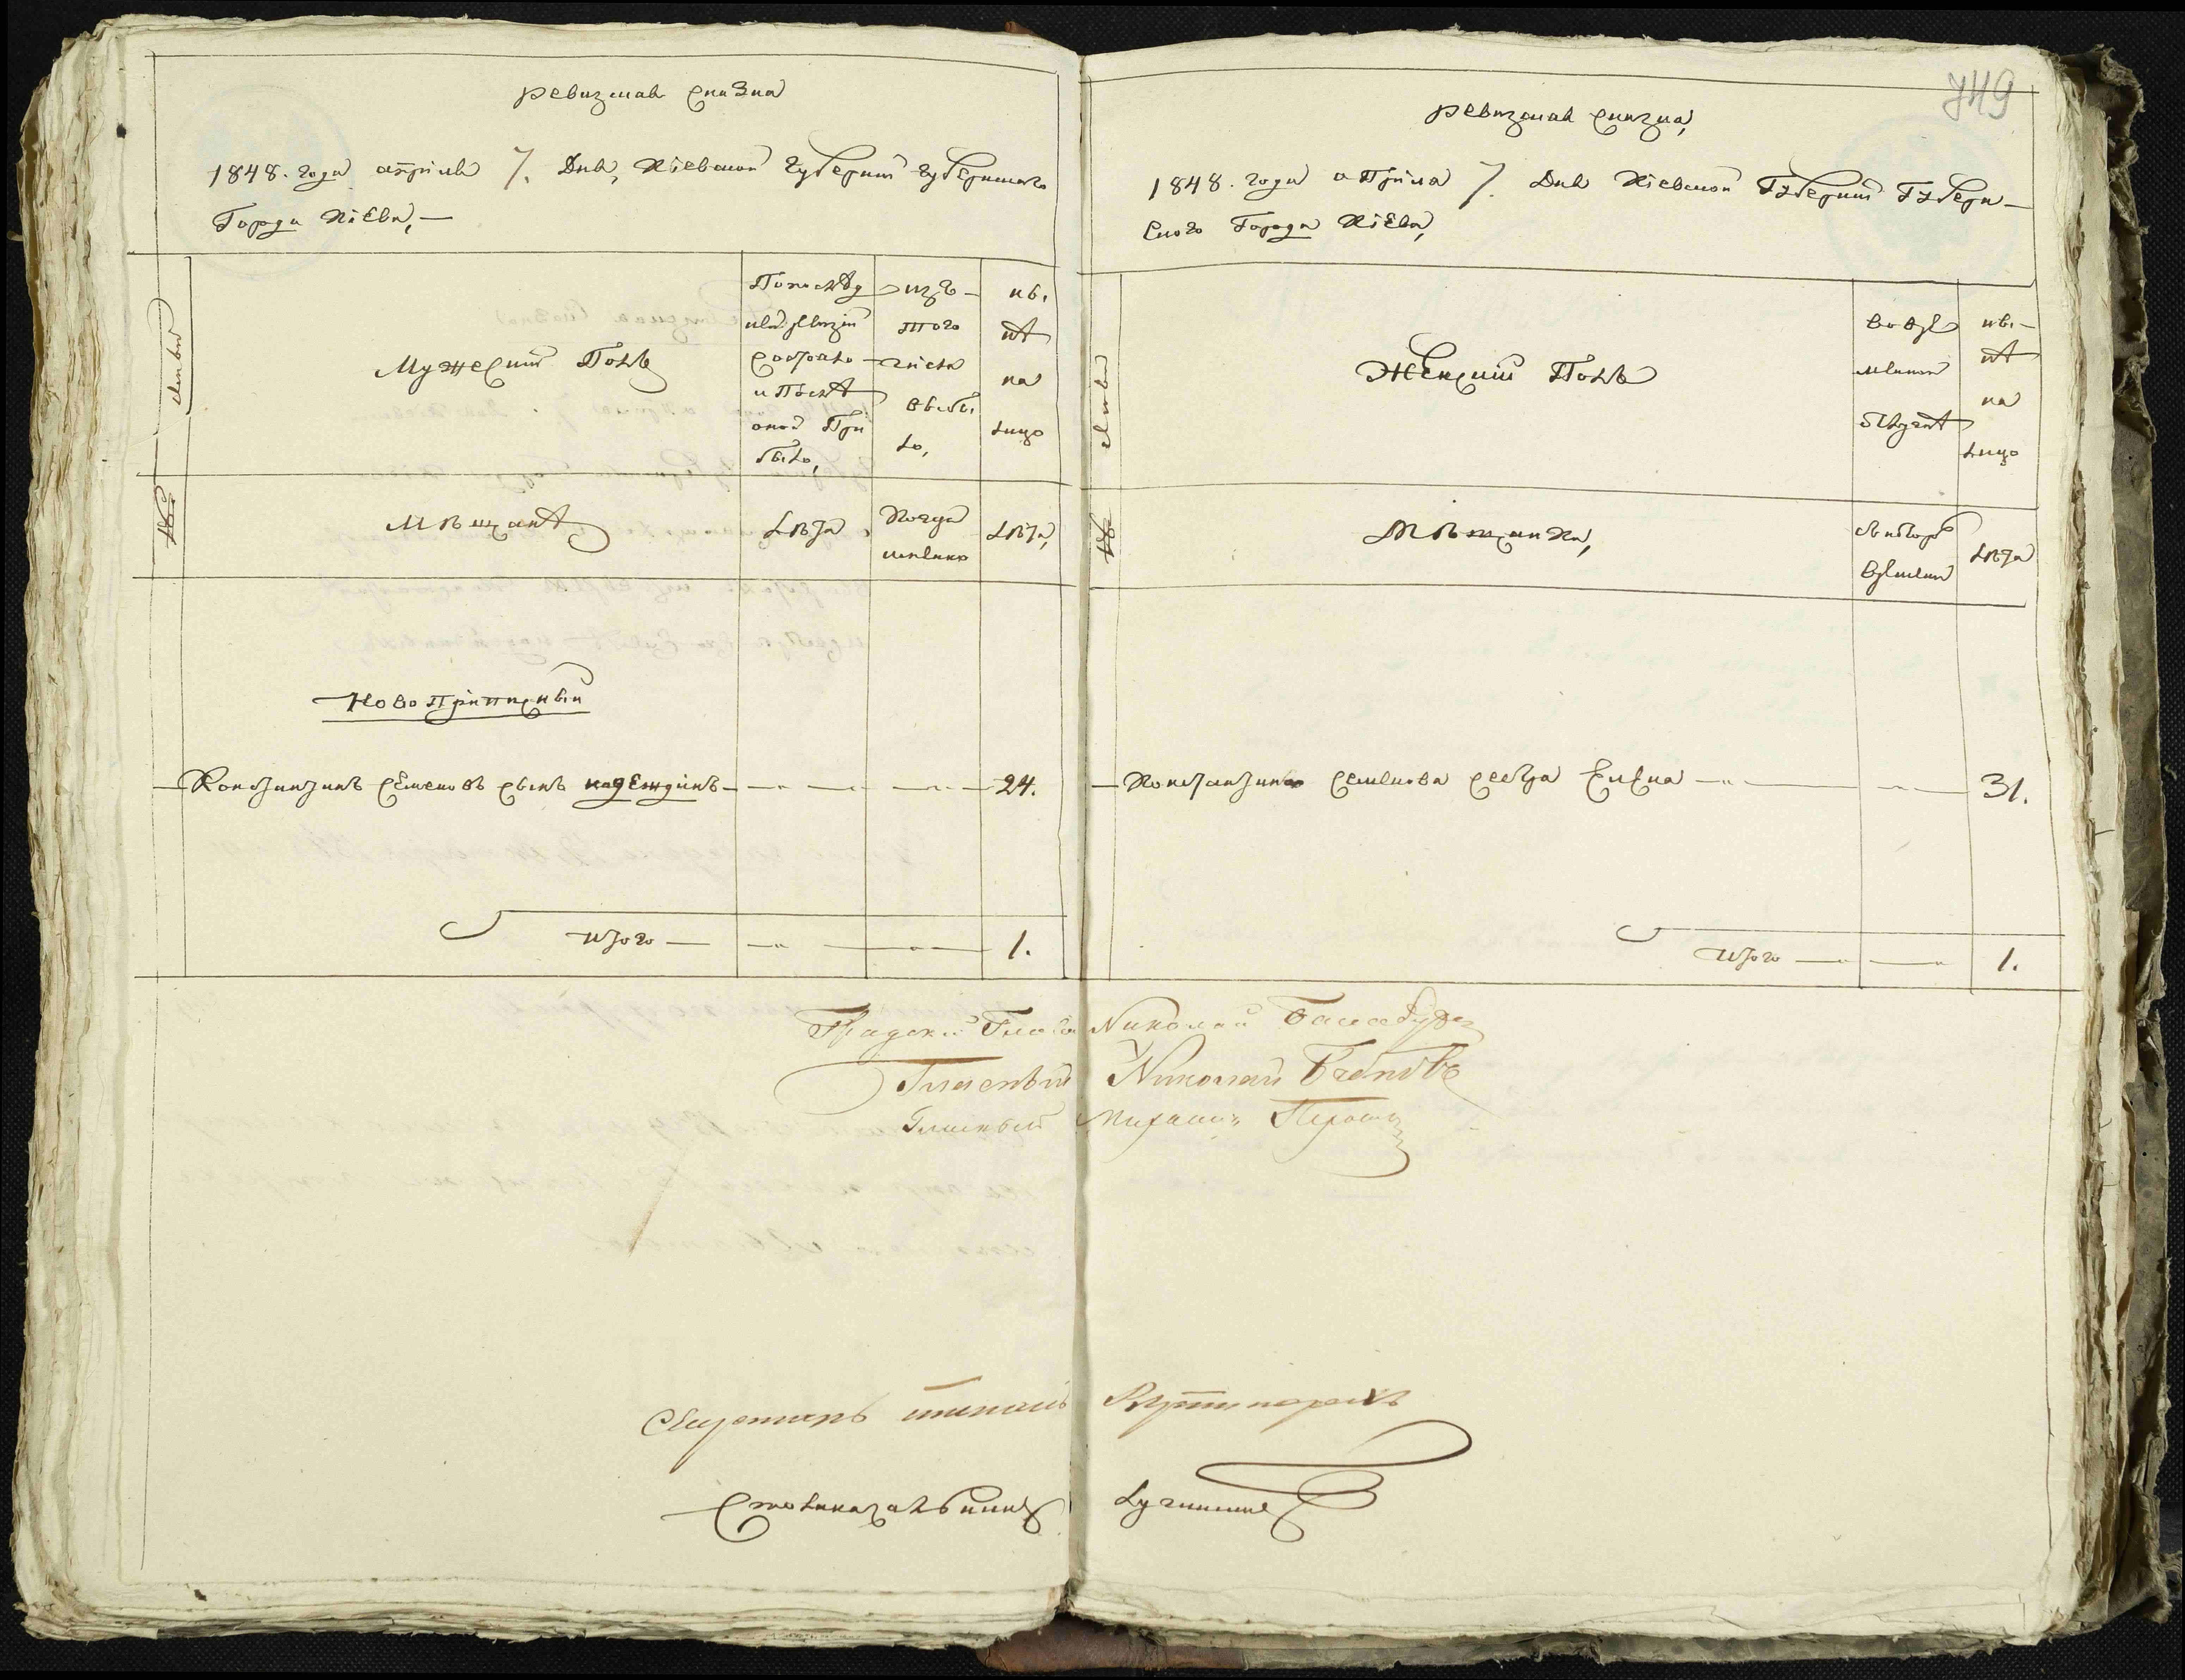 ревизская сказка
1848. года апрѣля 7. дня, Кіевской губерніи губернскаго
Города Кіева,
семьи
Мужескій Полъ
По послѣд
ней ревизіи
состояло
и Послѣ
оной При
было,
изъ
того
числа
выбы
ло,
ны
нѣ
на
лицо
№
Мѣщанѣ
Лѣта
Когда
именно
Лѣта,
НовоПриписный
Константинъ Семеновъ сынъ Надеждинъ 24.
Итого 1.
749
ревизская сказка,
1848. года апріля 7. дня Кіевской Губерніи Губерн-
ского Города Кіева,
семьи
Женскій Полъ
Во вре
менной
отлучкѣ
ны-
нѣ
на
лицо
№
Мѣщанка,
съ котораго
времени
Лѣта
Константина Семенова сестра Елена 31.
Итого 1.
Градскій Глава Николай Балабуха
Гласный Николай Бчбковъ
Гласный Михаилъ
Секретарь
Столоначальникъ